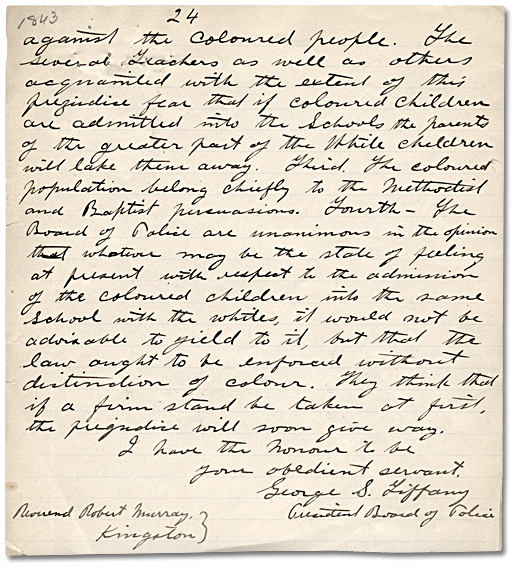 1843
24
against the coloured people. The
several Teachers as well as others
acquainted with the extent of this
prejudice fear that if coloured children
are admitted into the Schools the parents
of the greater part of the White children
will take them away. Third. The coloured
population belong chiefly to the Methodist
and Baptist persuasions. Fourth - The
Board of Police are unanimous in the opinion
that whatever may be the state of feeling
at present with respect to the admission
of the coloured children into the same
School with the whites, it would not be
advisable to yield to it, but that the
law ought to be enforced without
distinction of colour. They think that
if a firm stand be taken at first,
the prejudice will soon give way.
I have the honour to be
your obedient servant.
George S. Tiffany
President Board of Police
Reverend Robert Murray.
Kingston }